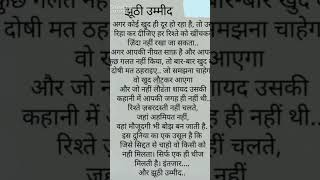 झूठी उम्मीद
अगर कोई खुद ही दूर हो रहा है, तो उ
रिहा कर दीजिए हर रिश्ते को खींचक
ज़िंदा नहीं रखा जा सकता..
अगर आपकी नीयत साफ़ है और आपन
कुछ गलत नहीं किया, तो बार-बार खुद
दोषी मत ठहराइए.. जो समझना चाहेग
वह खुद लौटकर आएगा
और जो नहीं लौटता शायद उसकी
कहानी में आपकी जगह ही नहीं थी..
रिश्ते ज़बरदस्ती नहीं चलते,
जहां अहमियत नहीं,
वहां मौजूदगी भी बोझ बन जाती है.
इस दुनिया का एक उसूल है कि
जिसे सिद्दत से चाहो वो किसी को
नही मिलता। सिर्फ एक ही चीज
मिलती है। इंतजार....
और झूठी उम्मीद..